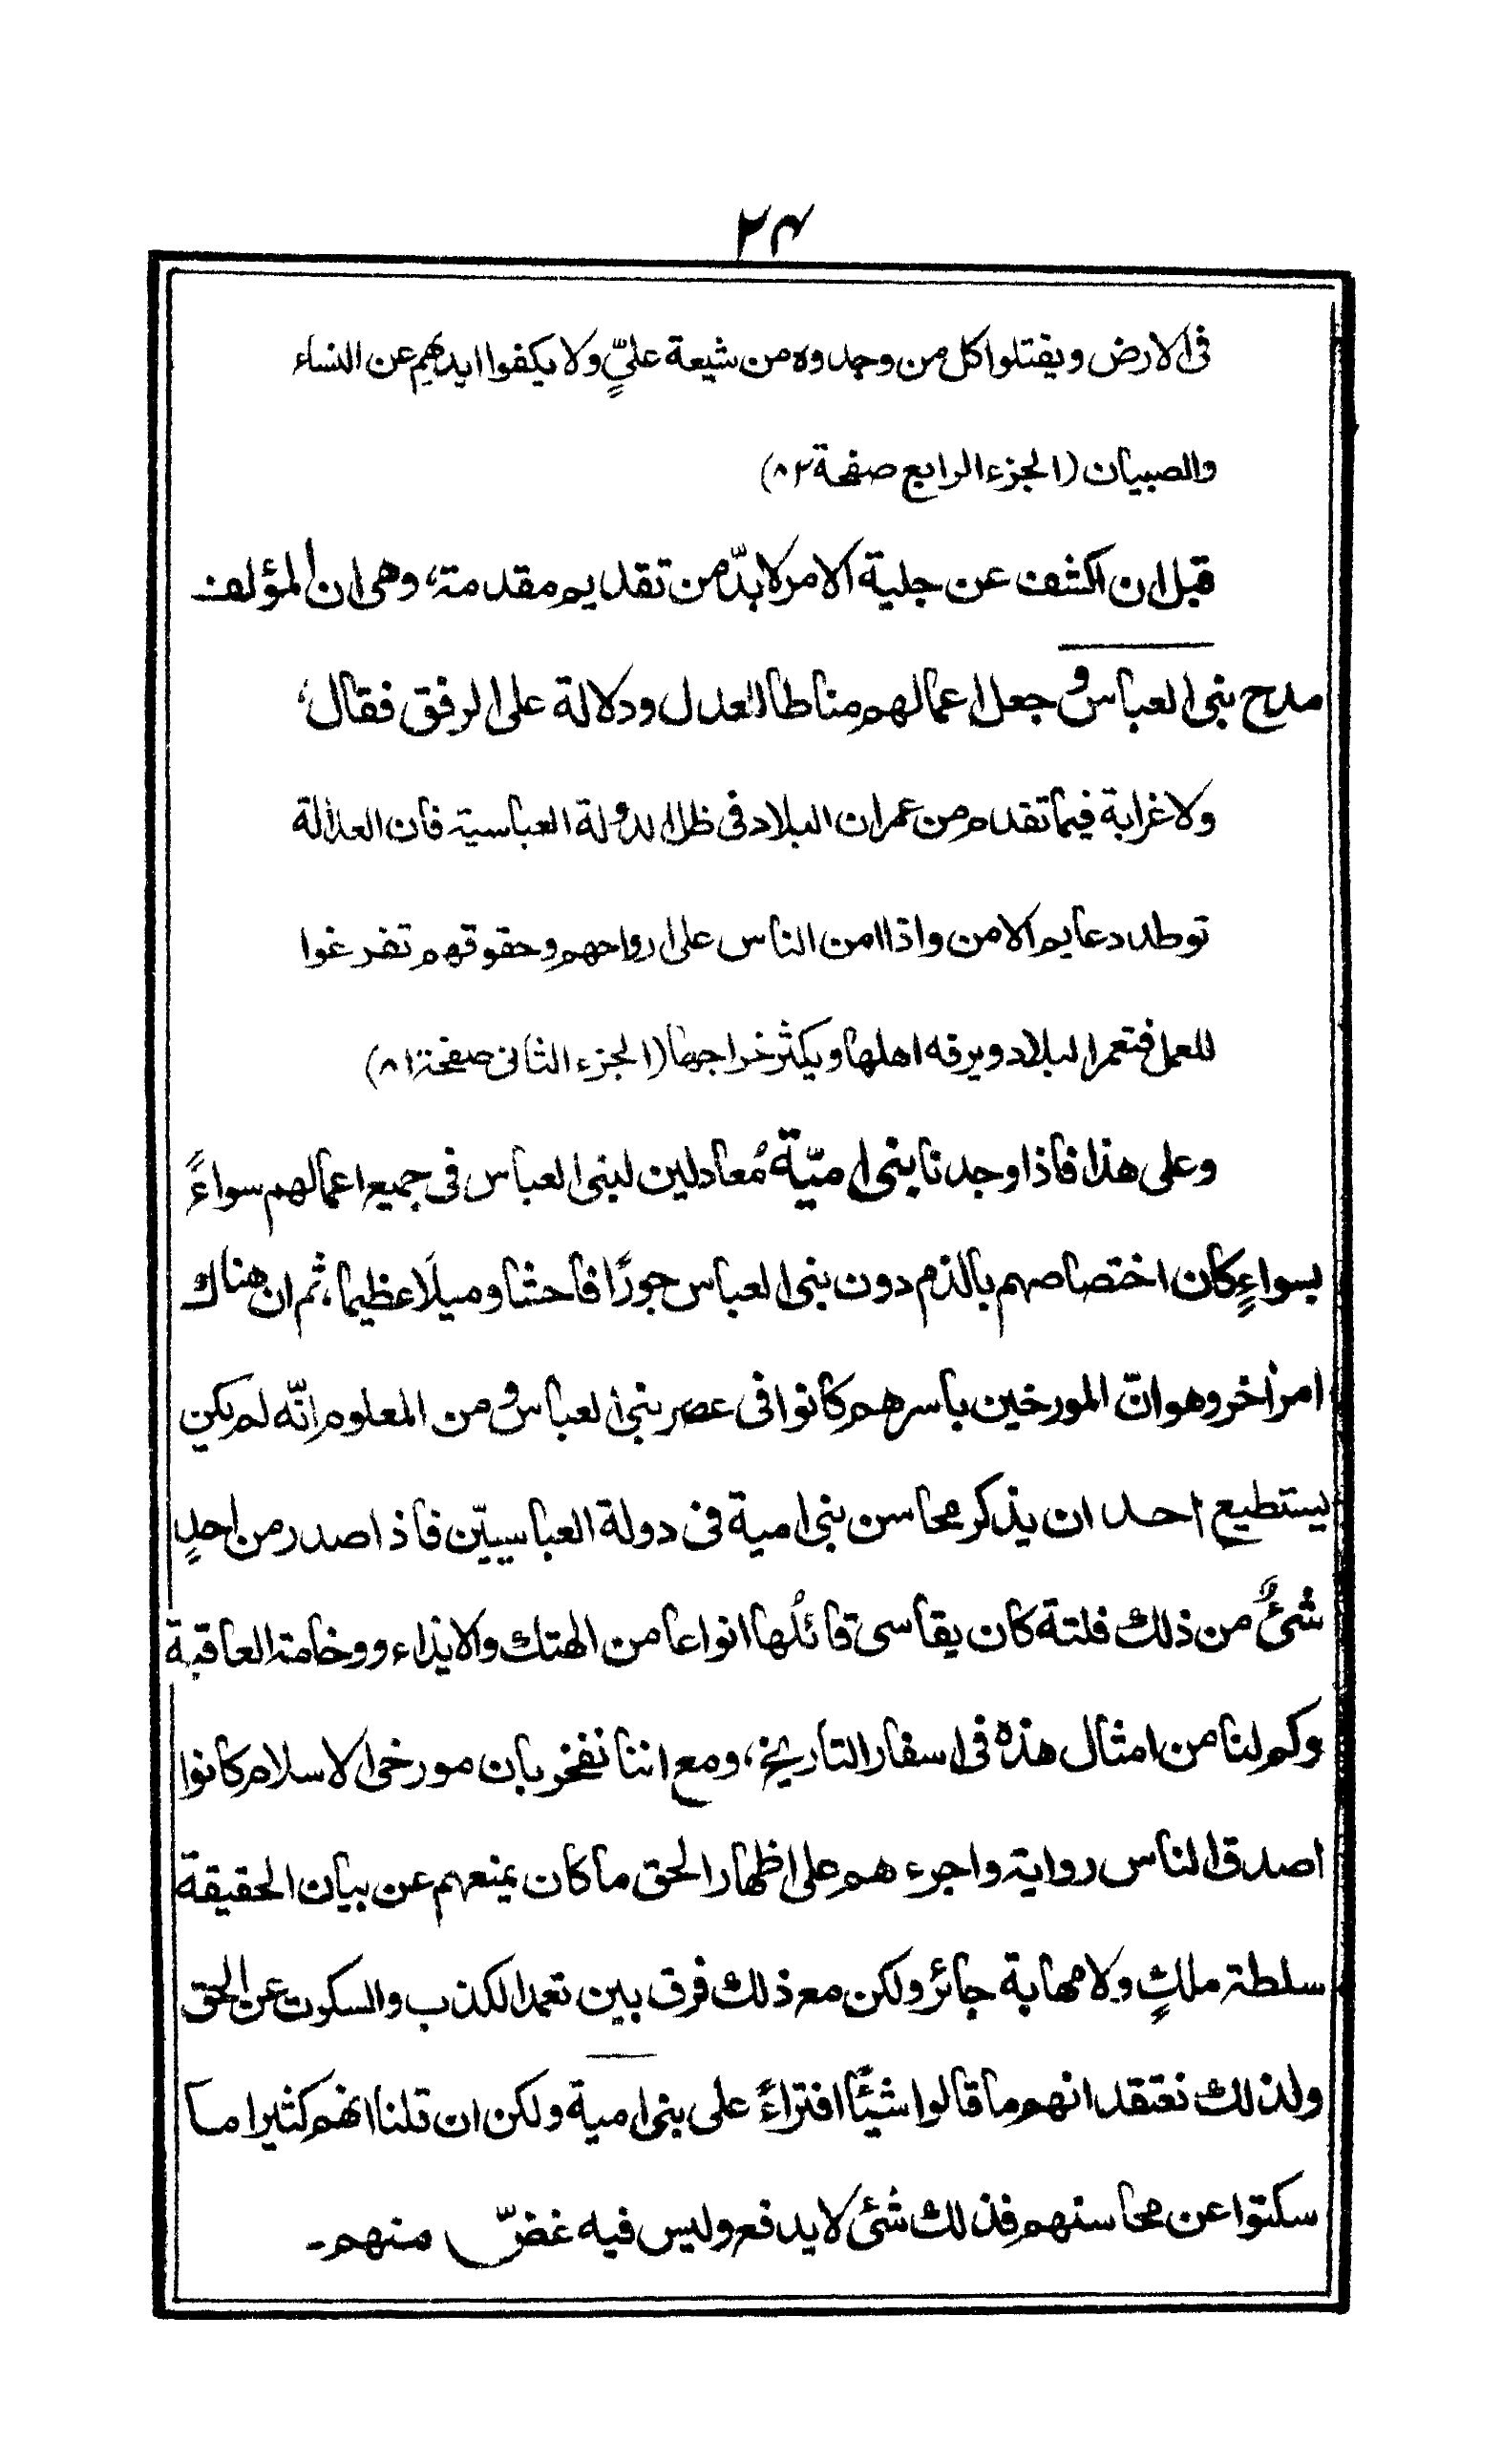 ۲۴
فى الارض ويقتلوا كل من وجدوه من شيعة علىٍّ ولا يكفوا ايديهم عن النساء
والصبيان (الجزء الرابع صفحة ۸۲)
قبل ان اكشف عن جلية الامر لابدّ من تقديم مقدمة، وهى ان المؤلف
مدح بنى العباس وجعل اعمالهم مناطا للعدل ودلالة على الرفق فقال،
ولا غرابة فيما تقدم من عمران البلاد فى ظل الدولة العباسية فان العدالة
توطد دعايم الامن واذا امن الناس على ارواحهم وحقوقهم تفرغوا
للعمل فتعمر البلاد ويرفه اهلها ويكثر خراجها (الجزء الثانى صفحة ۸۱)
وعلى هذا فاذا وجدنا بنى اميّة مُعادلين لبنى العباس فى جميع اعمالهم سواءً
بسواءٍ كان اختصاصهم بالذم دون بنى العباس جورًا فاحشا وميلًا عظيما، ثم ان هناك
امرا خر وهو انّ المورخين باسرهم كانوا فى عصر بنى العباس ومن المعلوم انّه لم يكن
يستطيع احد ان يذكر محاسن بنى امية فى دولة العباسيّين فاذا صدر من احدٍ
شئٌ من ذلك فلتة كان يقاسى قائلُها انواعا من الهتك والايذاء ووخامة العاقبة
وكم لنا من امثال هذه فى اسفار التاريخ، ومع اننا نفخر بان مورخى الاسلام كانوا
اصدق الناس رواية واجرء هم على اظهار الحق ما كان يمنعهم عن بيان الحقيقة
سلطة ملكٍ ولا مهابة جائر ولكن مع ذلك فرق بين تعمد الكذب والسكوت عن الحق
ولذلك نعتقد انهم ما قالوا شيئًا افتراءً على بنى امية ولكن ان قلنا انهم كثيرا ما
سكتوا عن محاسنهم فذلك شئ لا يدفع وليس فيه غضّ منهم ۔